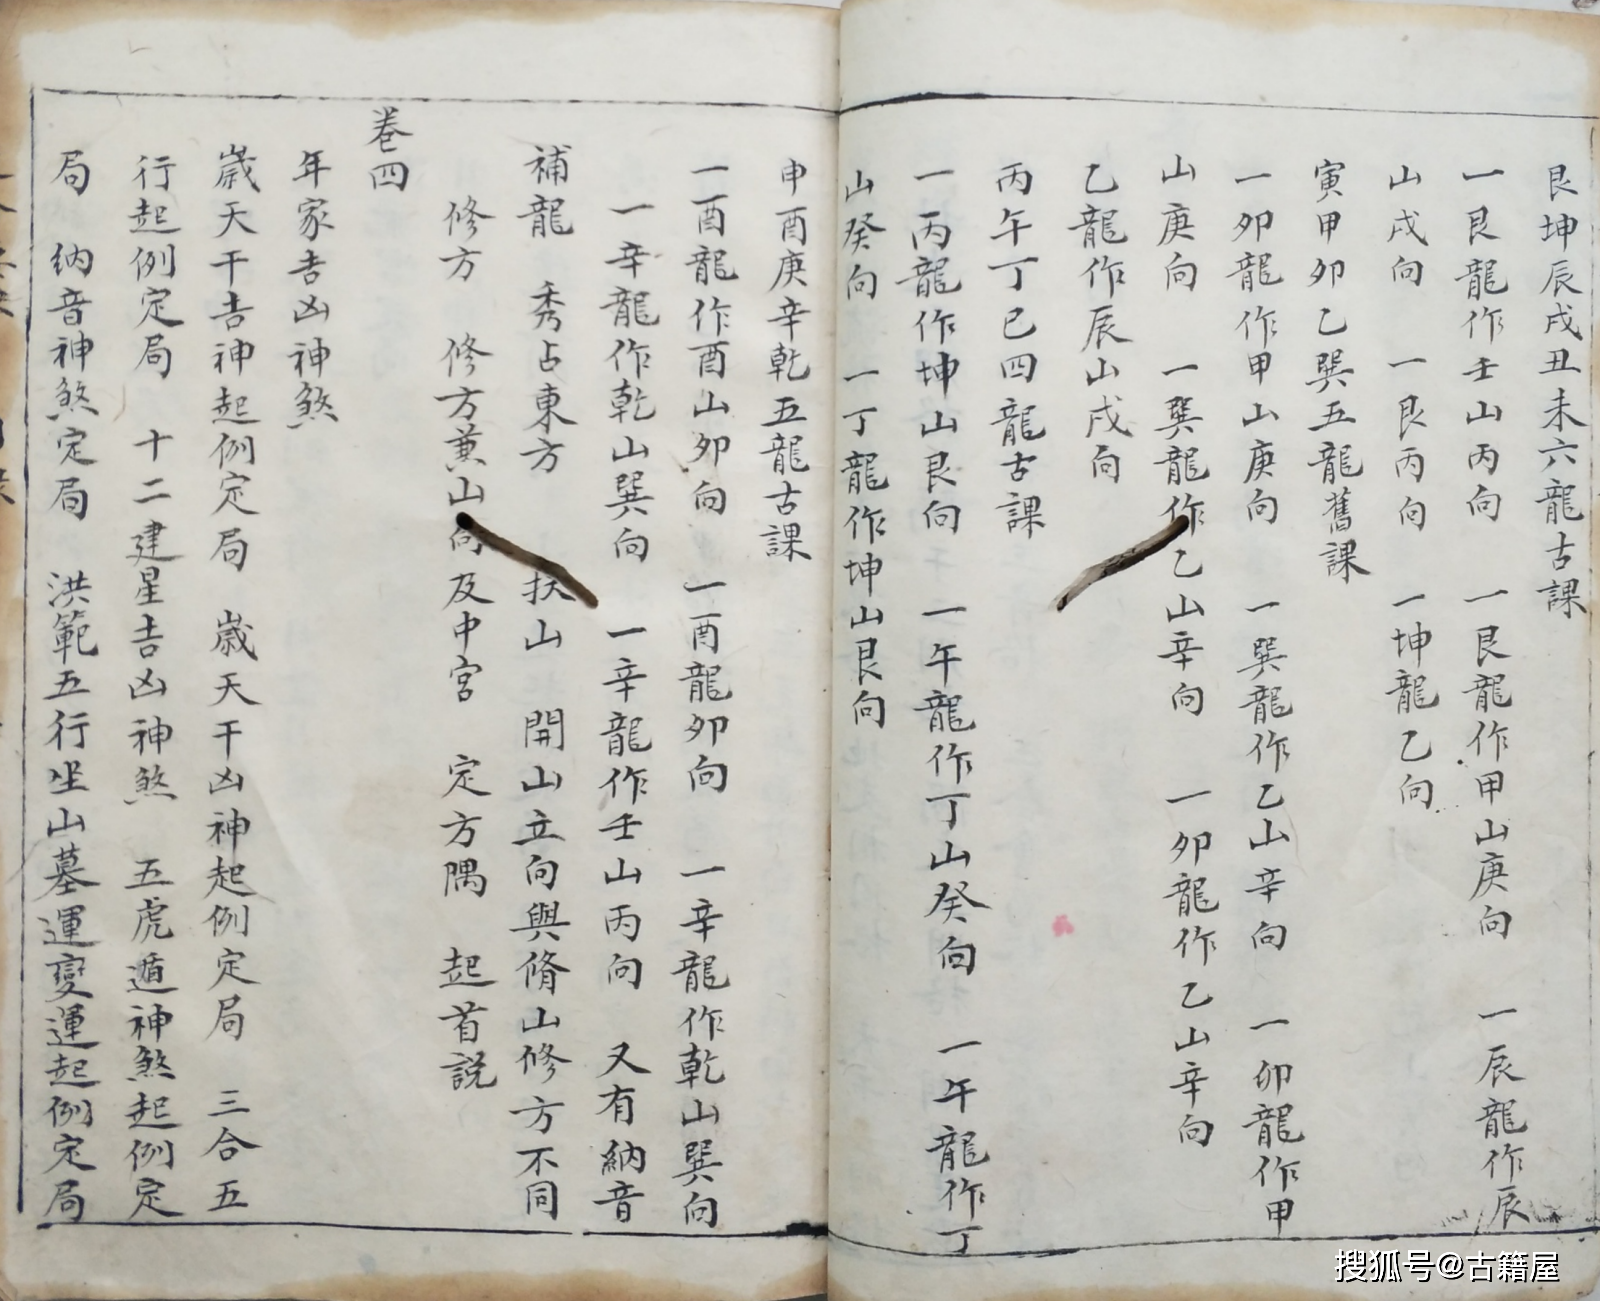 艮坤辰戌丑未六龍古課
一艮龍作壬山丙向　一艮龍作甲山庚向　一辰龍作辰
山戌向　一艮丙向　一坤龍乙向
寅甲卯乙巽五龍舊課
一卯龍作甲山庚向　一巽龍作乙山辛向　一卯龍作甲
山庚向　一巽龍作乙山辛向　一卯龍作乙山辛向
乙龍作辰山戌向
丙午丁巳四龍古課
一丙龍作坤山艮向　一午龍作丁山癸向　一午龍作丁
山癸向　一丁龍作坤山艮向
申酉庚辛乾五龍古課
一酉龍作酉山卯向　一酉龍卯向　一辛龍作乾山巽向
一辛龍作乾山巽向　一辛龍作壬山丙向　又有納音
補龍　秀占東方　扶山　開山立向與脩山修方不同
修方　修方兼山向及中宮　定方隅　起首説
卷四
年家吉凶神煞
歲天干吉神起例定局　歲天干凶神起例定局　三合五
行起例定局　十二建星吉凶神煞　五虎遁神煞起例定
局　納音神煞定局　洪範五行坐山墓運變運起例定局
搜狐号@古籍屋